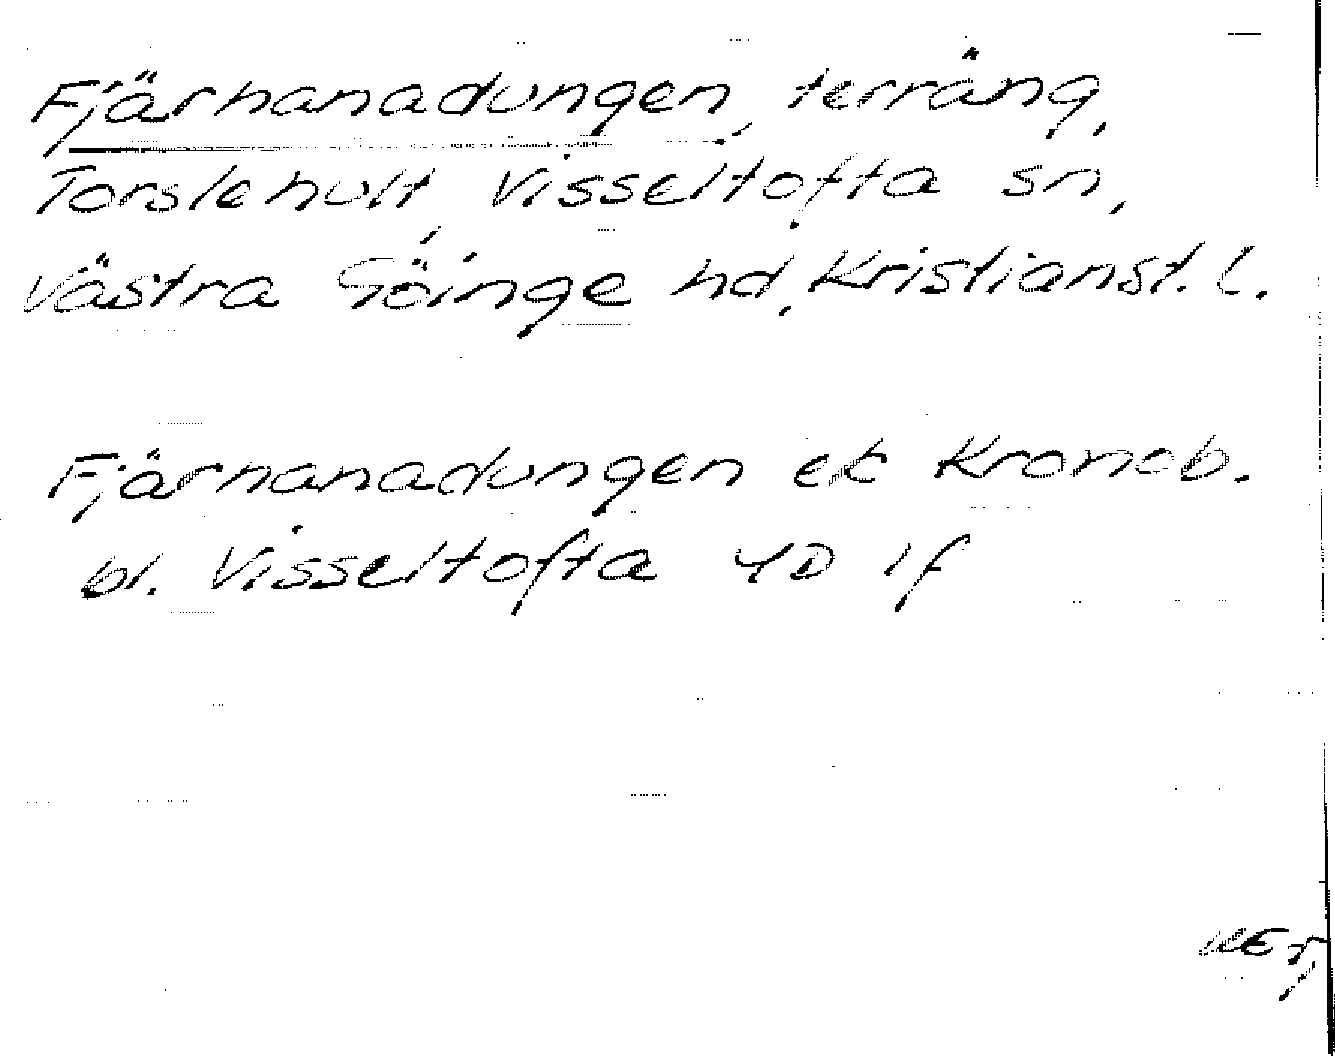 Fjärhanadungen, terräng,
Torslehult, Visseltofta sn,
Västra Göinge hd, Kristianst. l.
Fjärhanadungen ek Kronob.
bl. Visseltofta 4D 1f